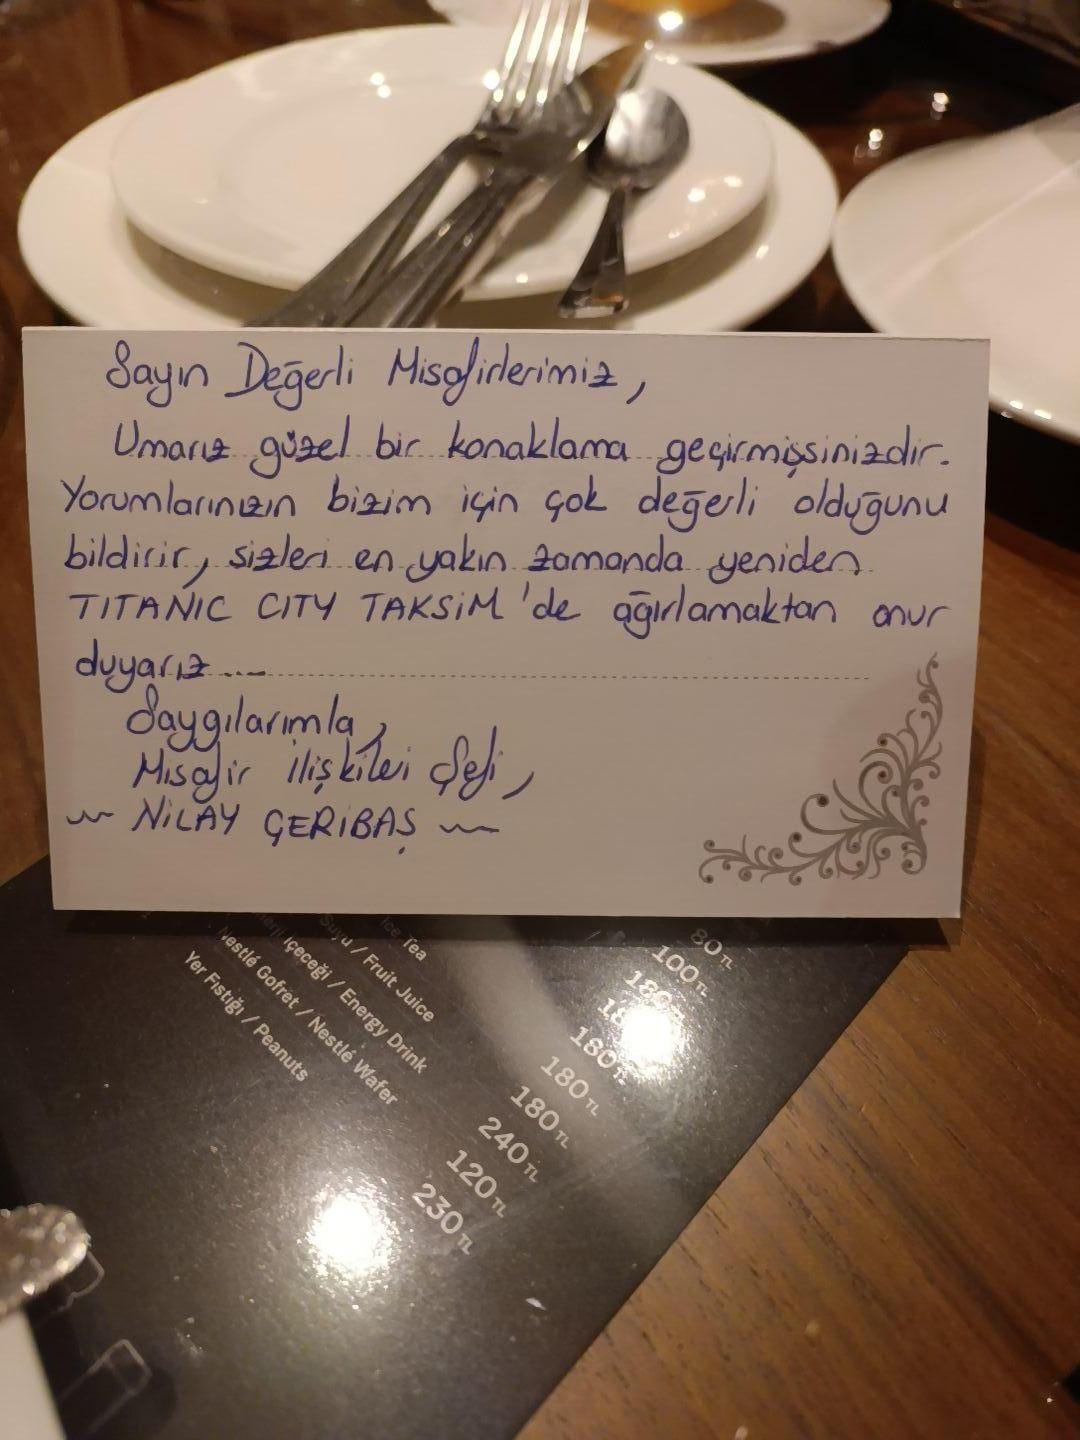 Sayın Değerli Misafirlerimiz,
Umarız güzel bir konaklama geçirmişsinizdir.
Yorumlarınızın bizim için çok değerli olduğunu
bildirir, sizleri en yakın zamanda yeniden
TITANIC CITY TAKSİM'de ağırlamaktan onur
duyarız....
Saygılarımla,
Misafir ilişkileri Şefi,
~ NİLAY ÇERİBAŞ ~
Ice Tea
Suyu / Fruit Juice
İçeceği / Energy Drink
Nestlé Gofret / Nestlé Wafer
Yer Fıstığı / Peanuts
80 TL
100 TL
180
180 TL
180 TL
180 TL
240 TL
120 TL
230 TL